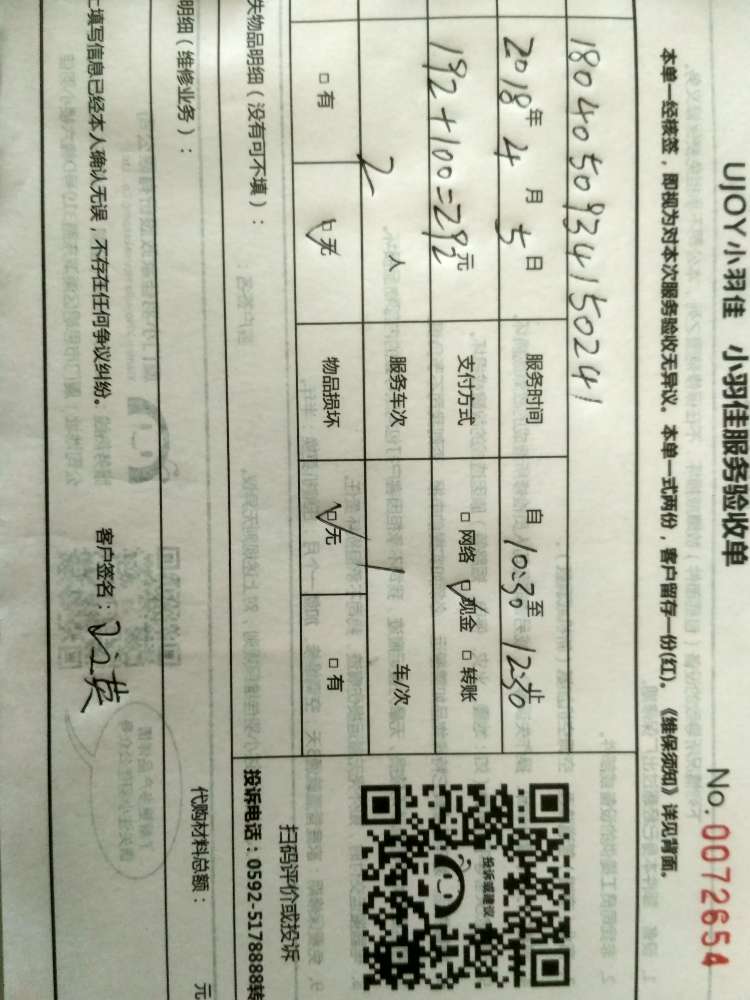 UJOY小羽佳 小羽佳服务验收单
No. 0072654
本单一经核签，即视为对本次服务验收无异议。本单一式两份，客户留存一份(红)。《维保须知》详见背面。
1804050934150241
2018年4月5日 服务时间 自10:30至12:30止
192+100=292元 支付方式 □网络 ☑现金 □转账
2人 服务车次 1车/次
□有 ☑无 物品损坏 ☑无 □有
投诉或建议
扫码评价或投诉
投诉电话：0592-5178888转
失物品明细（没有可不填）：
明细（维修业务）： 代购材料总额： 元
上填写信息已经本人确认无误，不存在任何争议纠纷。 客户签名：